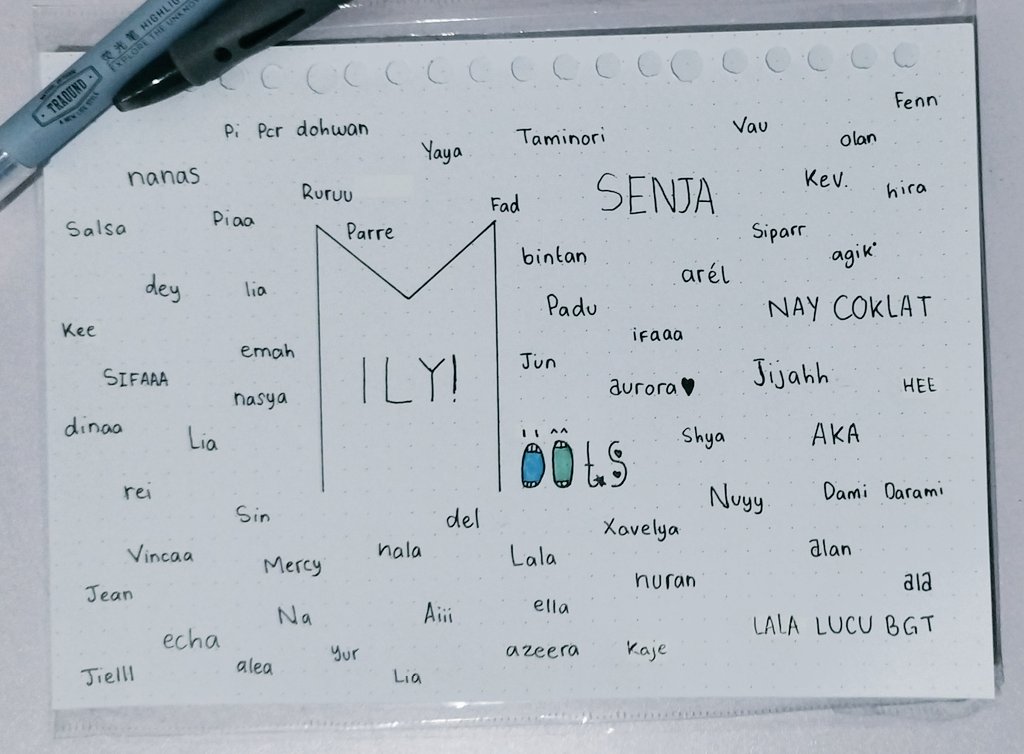 荧光笔 HIGHLIG
EXPLORE THE UNKNOW
TRAOUND
Fenn
Pi Pcr dohwan
Taminori
Vau
olan
Yaya
nanas
Ruruu
SENJA
Kev.
hira
Fad
Salsa
Piaa
Parre
Siparr
agik
bintan
arél
dey
lia
Padu
NAY COKLAT
Kee
ifaaa
emah
ILY!
Jun
SIFAAA
nasya
aurora♥
Jijahh
HEE
dinaa
Lia
Shya
AKA
ööts
rei
Nuyy
Dami Darami
Sin
del
Xavelya
Vincaa
Mercy
nala
Lala
alan
Jean
nuran
ala
Na
Aiii
ella
LALA LUCU BGT
echa
alea
Yur
azeera
Kaje
Jielll
Lia